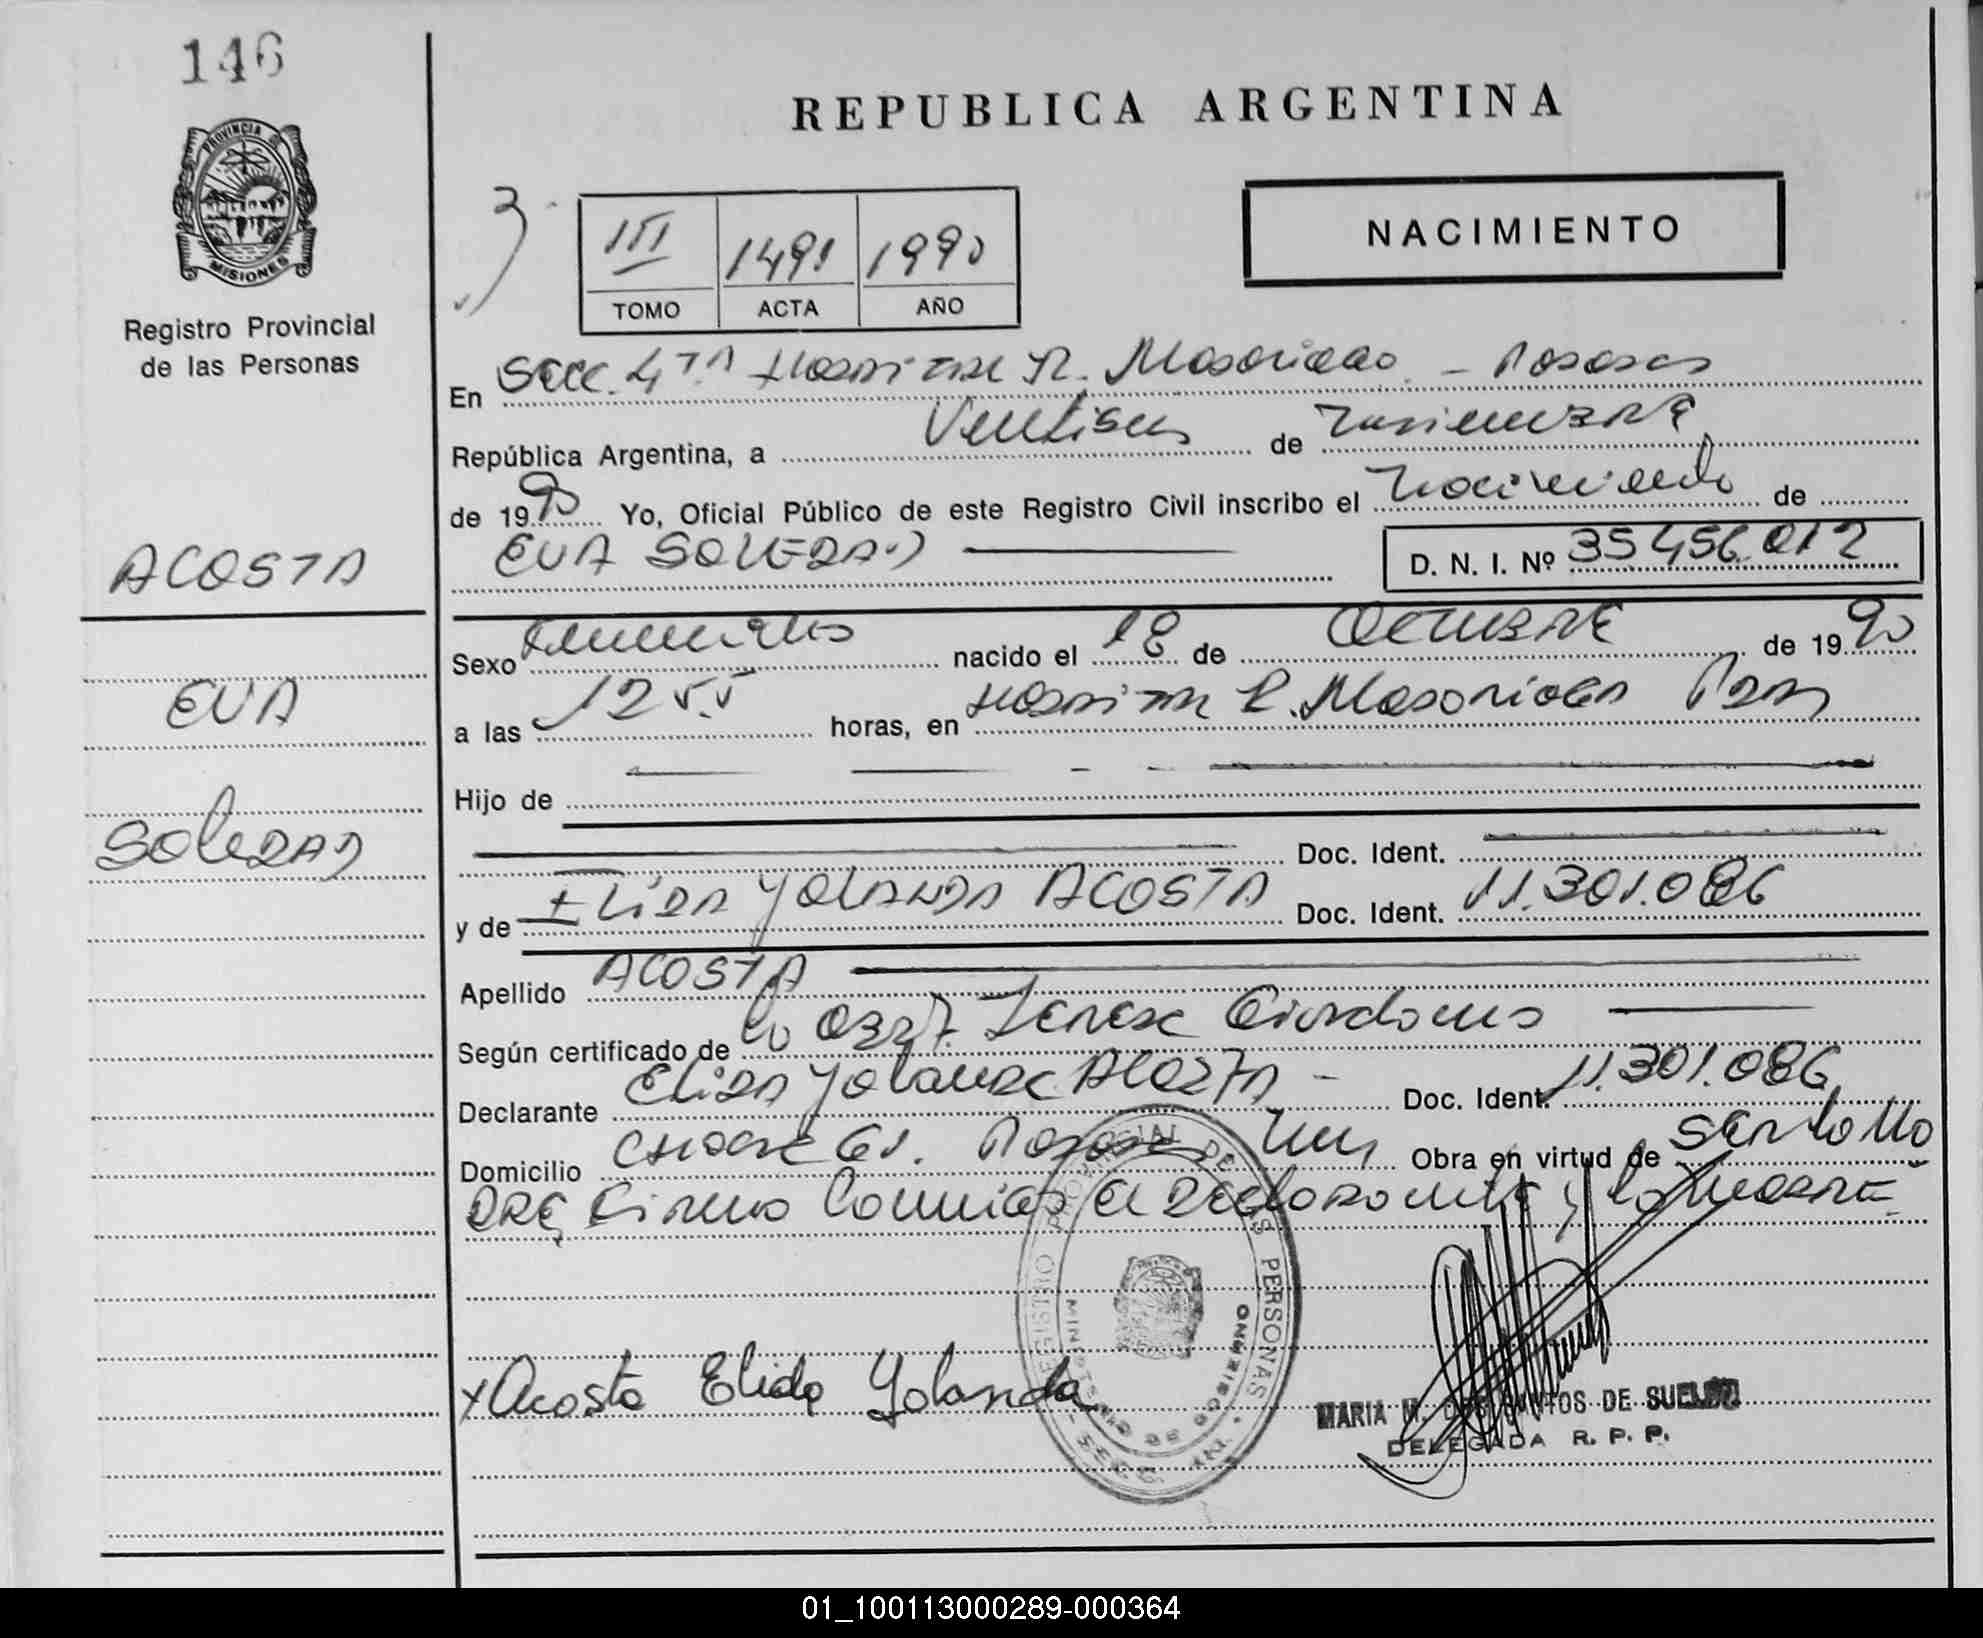 146
REPUBLICA ARGENTINA
PROVINCIA DE
MISIONES
Registro Provincial
de las Personas
NACIMIENTO
3
III 1491 1990
TOMO ACTA AÑO
En Secc. 4TA Hospital R. Madariaga - Posadas
República Argentina, a Veintiseis de Noviembre
de 1990 Yo, Oficial Público de este Registro Civil inscribo el nacimiento de
EVA SOLEDAD D. N. I. Nº 35.456.012
ACOSTA
EVA
SOLEDAD
Sexo Femenino nacido el 18 de OCTUBRE de 1990
a las 12 55 horas, en Hospital R. Madariaga Pdas
Hijo de
Doc. Ident.
y de ELIDA YOLANDA ACOSTA Doc. Ident. 11.301.086
Apellido ACOSTA
Según certificado de la Obst. Teresa
Declarante Elida Yolanda ACOSTA - Doc. Ident. 11.301.086
Domicilio 61. Posadas Mnes Obra en virtud de ser la Ma
DRE Firma Conmigo el Declarante y la Madre
REGISTRO PROVINCIAL DE LAS PERSONAS
x Acosta Elida Yolanda
MARIA M. DOS SANTOS DE SUELDO
DELEGADA R. P. P.
01_100113000289-000364